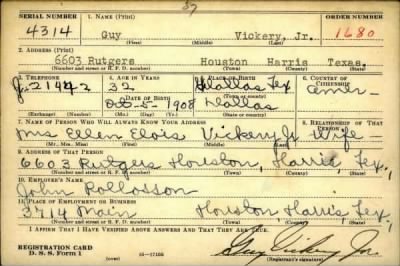 37
SERIAL NUMBER 1. NAME (Print) ORDER NUMBER
4314 Guy Vickery, Jr. 1680
(First) (Middle) (Last)
2. ADDRESS (Print)
6603 Rutgers Houston Harris Texas.
(Number and street or R. F. D. number) (Town) (County) (State)
3. TELEPHONE 4. AGE IN YEARS 5. PLACE OF BIRTH 6. COUNTRY OF CITIZENSHIP
J. 21942 32 Dallas Tex Amer-
DATE OF BIRTH (Town or county)
Oct-5-1908 Dallas
(Exchange) (Number) (Mo.) (Day) (Yr.) (State or country)
7. NAME OF PERSON WHO WILL ALWAYS KNOW YOUR ADDRESS 8. RELATIONSHIP OF THAT PERSON
Mrs Ellen Elois Vickery Jr wife
(Mr., Mrs., Miss) (First) (Middle) (Last)
9. ADDRESS OF THAT PERSON
6603 Rutgers Houston, Harris, Tex.,
(Number and street or R. F. D. number) (Town) (County) (State)
10. EMPLOYER'S NAME
John Rollosson
11. PLACE OF EMPLOYMENT OR BUSINESS
3714 Main Houston, Harris, Tex.,
(Number and street or R. F. D. number) (Town) (County) (State)
I AFFIRM THAT I HAVE VERIFIED ABOVE ANSWERS AND THAT THEY ARE TRUE.
REGISTRATION CARD
D. S. S. Form 1 (over) 16-17105 Guy Vickery Jr.
(Registrant's signature)